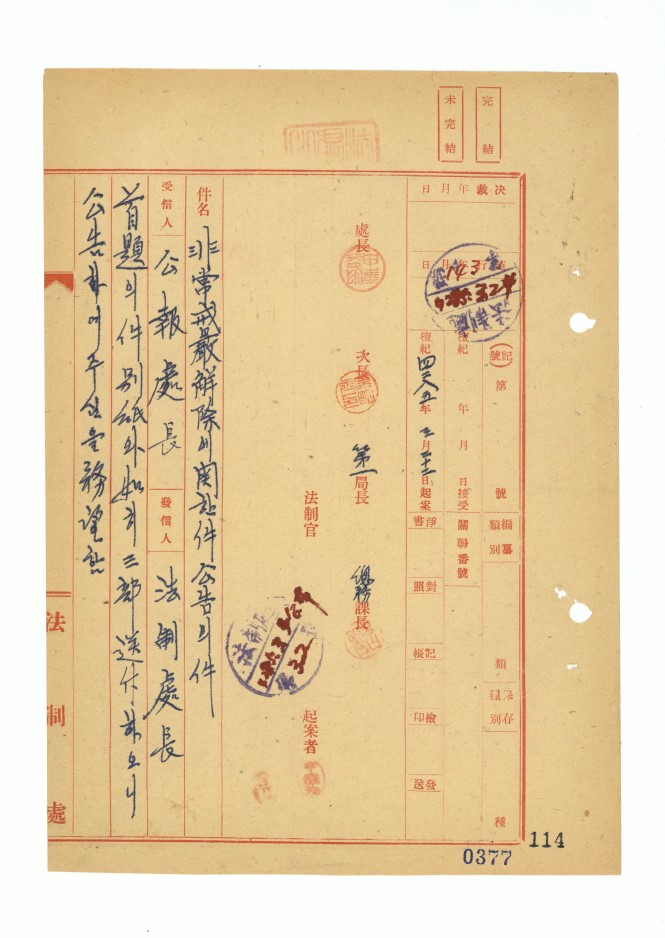 完結
未完結
決裁 年 月 日
施行 年 月 日
(記號) 第 號
編纂類別 類
保存種別 種
檀紀 年 月 日接受
關聯番號
檀紀四二八五年三月二十二日起案
淨書
對照
記帳
檢印
發送
處長
次長
第一局長
總務課長
法制官
起案者
件名 非常戒嚴解除에関한件公告의件
受信人 公報處長
發信人 法制處長
首題의件別紙와如히三部送付하오니
公告하여주심을務望함
法制處
114
0377